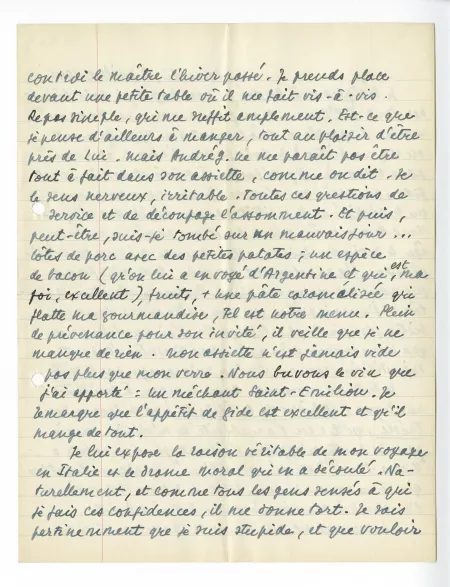 contredi le maître l'hiver passé. Je prends place
devant une petite table où il me fait vis-à-vis.
Repas simple, qui me suffit amplement. Est-ce que
je pense d'ailleurs à manger, tout au plaisir d'être
près de lui. Mais André G. ne me paraît pas être
tout à fait dans son assiette, comme on dit. Je
le sens nerveux, irritable. Toutes ces questions de
service et de découpage l'assomment. Et puis,
peut-être, suis-je tombé sur un mauvais jour ...
Côtes de porc avec des petites patates ; un espèce
de bacon (qu'on lui a envoyé d'Argentine et qui est, ma
foi, excellent), fruits, + une pâte caramélisée qui
flatte ma gourmandise, tel est notre menu. Plein
de prévenance pour son invité, il veille que je ne
manque de rien. Mon assiette n'est jamais vide
pas plus que mon verre. Nous buvons le vin que
j'ai apporté : un méchant Saint-Emilion. Je
remarque que l'appétit de Gide est excellent et qu'il
mange de tout.
Je lui expose la raison véritable de mon voyage
en Italie et le drame moral qui en a découlé. Na-
turellement, et comme tous les gens sensés à qui
je fais ces confidences, il me donne tort. Je sais
pertinemment que je suis stupide, et que vouloir